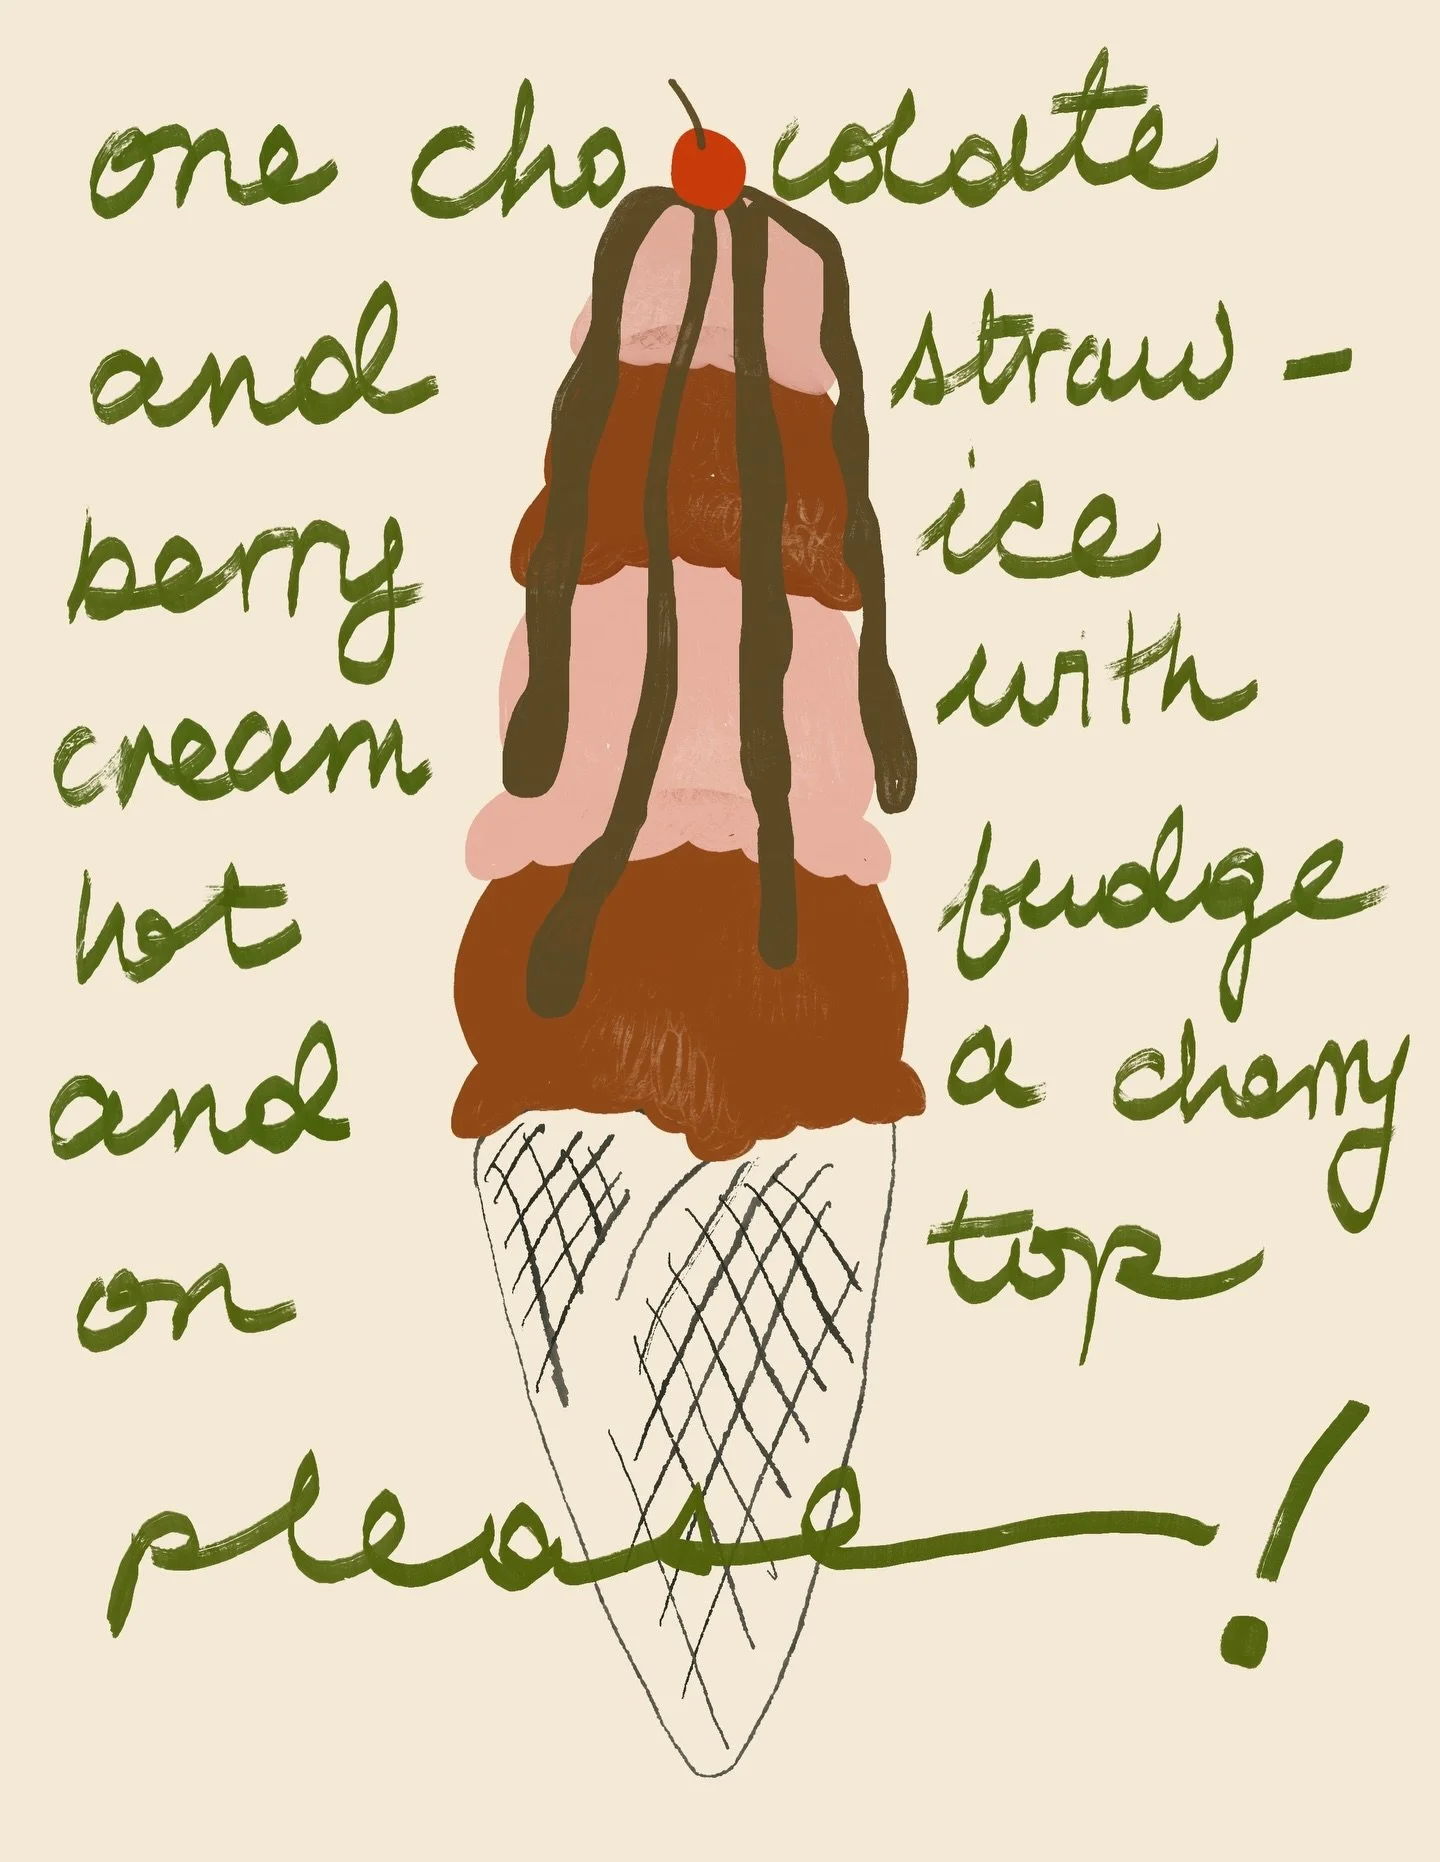 one chocolate
and straw-
berry ice
cream with
hot fudge
and a cherry
on top
please!